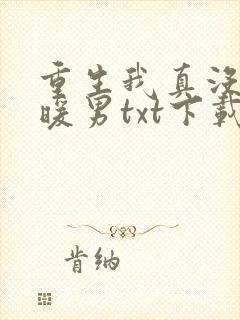 重生我真没
暖男txt下载
肯纳